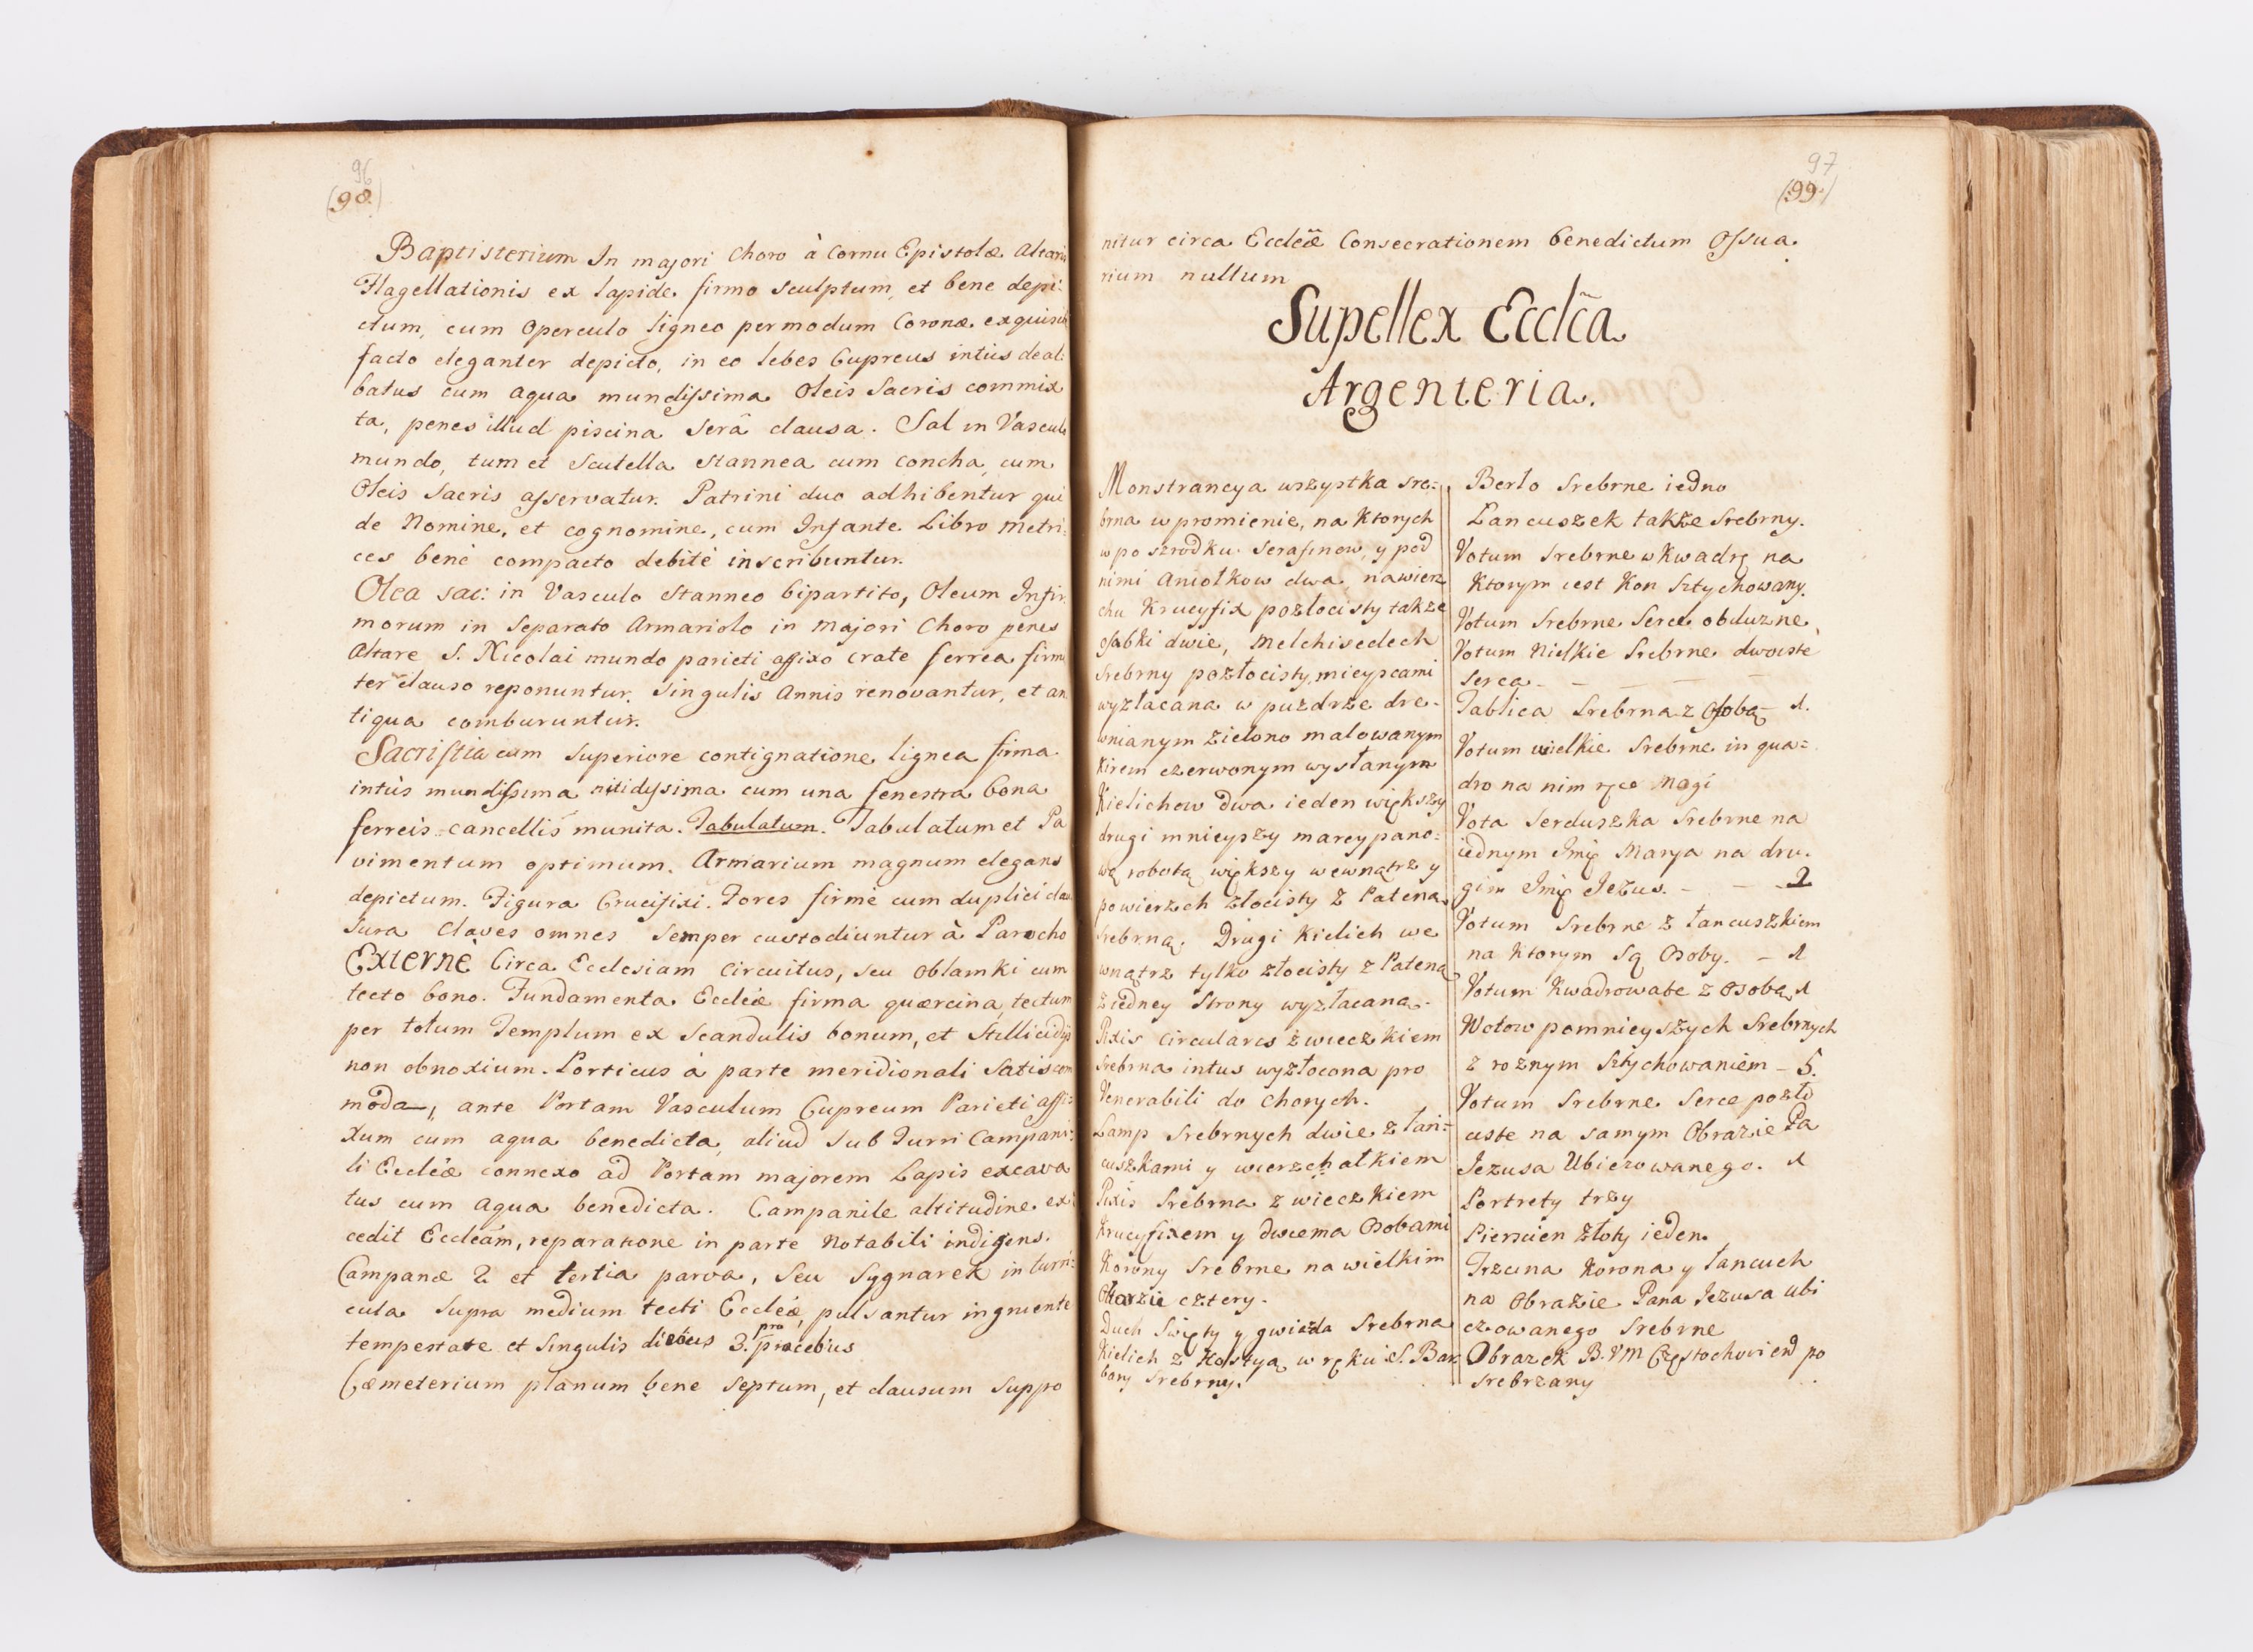 96
(98)
Baptisterium In majori Choro à Cornu Epistolæ Altaris
Flagellationis ex lapide firmo sculptum, et bene depi:
ctum, cum Operculo ligneo per modum Coronæ exquisite
facto eleganter depicto, in eo lebes Cupreus intùs deal:
batus cum aqua mundissima Oleis Sacris commix
ta, penes illud piscina Serâ clausa. Sal in Vasculo
mundo, tum et Scutella stannea cum concha, cum
Oleis Sacris asservatur. Patrini duo adhibentur qui
de Nomine, et cognomine, cum Infante Libro Metri:
ces benè compacto debitè inscribuntur.
Olea sac: in Vasculo Stanneo bipartito, Oleum Infir
morum in Separato Armariolo in Majori Choro penes
Altare S. Nicolai mundo parieti affixo crate ferrea firmi
ter clauso reponuntur. Singulis Annis renovantur, et an
tiqua comburuntur.
Sacristia cum Superiore contignatione lignea firma
intùs mundissima nitidissima cum una fenestra bona
ferreis cancellis munita. Tabulatum. Tabulatum et Pa
vimentum optimum. Armarium magnum elegans
depictum. Figura Crucifixi. Fores firmè cum duplici clau
sura Claves omnes semper custodiuntur à Parocho
Externè Circa Ecclesiam circuitus, seu Oblamki cum
tecto bono. Fundamenta Eccleiæ firma quærcina, tectum
per totum Templum ex Scandulis bonum, et Stillicidijs
non obnoxium. Porticus à parte meridionali Satis com
moda, ante Portam Vasculum Cupreum Parieti affi:
xum cum aqua benedicta, aliud sub Turri Campani:
li Eccleiæ connexo ad Portam majorem Lapis excava
tus cum Aqua benedicta. Campanile altitudine ex
cedit Eccleam, reparatione in parte Notabili indigens.
Campanæ 2 et tertia parva, seu Sygnarek in turri:
cula Supra medium tecti Eccleiæ, pulsantur ingruente
tempestate et Singulis diebus 3. pro precibus
Cæmeterium planum bene septum, et clausum Suppo
97
(99)
nitur circa Eccleiæ Consecrationem benedictum Ossua
rium nullum
Supellex Ecclca
Argenteria.
Monstrancya wszystka sre:
brna w promienie, na ktorych
w po szrodku Serafinow, y pod
nimi Aniołkow dwa, na wierz
chu Krucyfix pozłocisty takze
osobki dwie, Melchisedech
Srebrny pozłocisty, mieyscami
wyzłacana w puzdrze dre-
wnianym zielono malowanym
kirem czerwonym wysłanym
Kielichow dwa ieden większy
drugi mnieyszy marcypano:
wą robotą większy wewnątrz y
powierzch złocisty z Pateną
srebrną. Drugi Kielich we
wnątrz tylko złocisty z Pateną
z iedney Strony wyzłacaną.
Pixis Circulares z wieczkiem
srebrna intus wyzłocona pro
Venerabili do Chorych.
Lamp srebrnych dwie z łań:
cuszkami y wierzchałkiem
Puxis srebrna z wieczkiem
Krucyfixem y dwiema Osobami
Korony Srebrne na wielkim
Ołtarzie cztery.
Duch Swięty y gwiazda Srebrna
Kielich z Hostyą w ręku S. Bar
bary srebrny.
Berło Srebrne iedno
Lancuszek także Srebrny.
Votum Srebrne w Kwadrę na
Ktorym iest Kon Sztychowany.
Votum Srebrne Serce obłuzne
Votum Nielkie Srebrne dwoiste
Serca - - - -
Tablica Srebrna z Osobą - 1.
Votum wielkie Srebrne in qua=
dro na nim ręce Nogi
Vota Serduszka Srebrne na
iednym Imię Marya na dru.
gim Imię Jezus. - - - 2
Votum Srebrne z łancuszkiem
na ktorym Są Osoby. - 1
Votum Kwadrowate z osobą 1
Wotow pomnieyszych Srebrnych
z roznym Sztychowaniem - 5.
Votum Srebrne Serce pozło
ciste na samym Obrazie Pa
Jezusa Ubiczowanego. 1
Portrety trzy
Pierscien złoty ieden.
Trzcina Korona y łancuch
na Obrazie Pana Jezusa Ubi
czowanego Srebrne
Obrazek B. V M Częstochowi en po
srebrzany